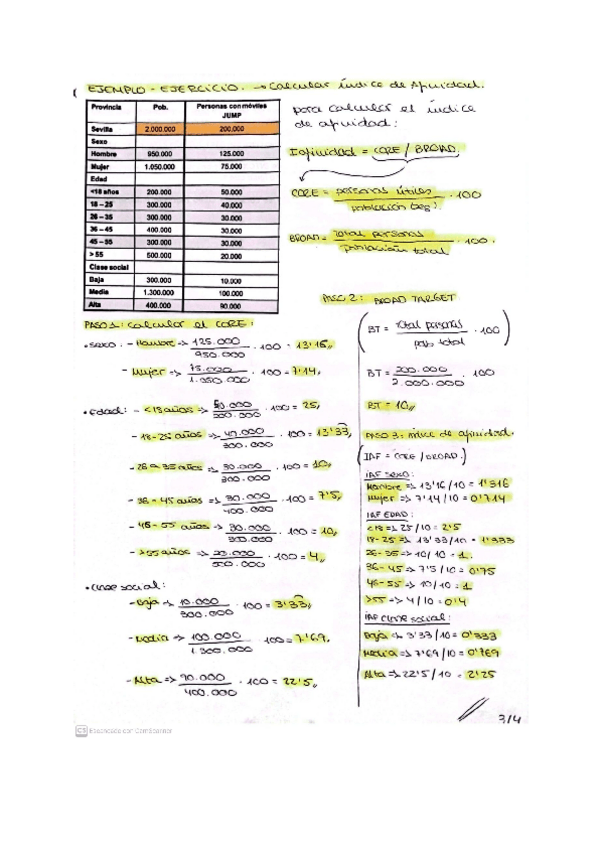 EJEMPLO - EJERCICIO. → Calcular índice de Afinidad.
Provincia Pob. Personas con móviles JUMP
Sevilla 2.000.000 200.000
Sexo
Hombre 950.000 125.000
Mujer 1.050.000 75.000
Edad
<18 años 200.000 50.000
18 – 25 300.000 40.000
26 – 35 300.000 30.000
36 – 45 400.000 30.000
45 – 55 300.000 30.000
> 55 500.000 20.000
Clase social
Baja 300.000 10.000
Media 1.300.000 100.000
Alta 400.000 90.000
para calcular el índice
de afinidad:
I afinidad = CORE / BROAD.
CORE = personas útiles / población seg. · 100
BROAD = total personas / población total · 100.
PASO 1: calcular el CORE:
• sexo. - Hombre => 125.000 / 950.000 · 100 = 13'16,,
- Mujer => 75.000 / 1.050.000 · 100 = 7'14,,
• Edad: - <18 años => 50.000 / 200.000 · 100 = 25,,
- 18-25 años => 40.000 / 300.000 · 100 = 13'33,,
- 26 a 35 años => 30.000 / 300.000 · 100 = 10,,
- 36 - 45 años => 30.000 / 400.000 · 100 = 7'5,,
- 45 - 55 años => 30.000 / 300.000 · 100 = 10,,
- >55 años => 20.000 / 500.000 · 100 = 4,,
• Clase social:
- Baja => 10.000 / 300.000 · 100 = 3'33,,
- Media => 100.000 / 1.300.000 · 100 = 7'69,,
- Alta => 90.000 / 400.000 · 100 = 22'5,,
PASO 2: BROAD TARGET
(BT = total personas / pob. total · 100)
BT = 200.000 / 2.000.000 · 100
BT = 10,,
PASO 3: índice de afinidad.
(IAF = CORE / BROAD.)
IAF SEXO:
Hombre => 13'16 / 10 = 1'316
Mujer => 7'14 / 10 = 0'714
IAF EDAD:
<18 => 25 / 10 = 2'5
18-25 => 13'33 / 10 = 1'333
26-35 => 10 / 10 = 1.
36-45 => 7'5 / 10 = 0'75
46-55 => 10 / 10 = 1
>55 => 4 / 10 = 0'4
IAF clase social:
Baja => 3'33 / 10 = 0'333
Media => 7'69 / 10 = 0'769
Alta => 22'5 / 10 = 2'25
3/4
CS Escaneado con CamScanner